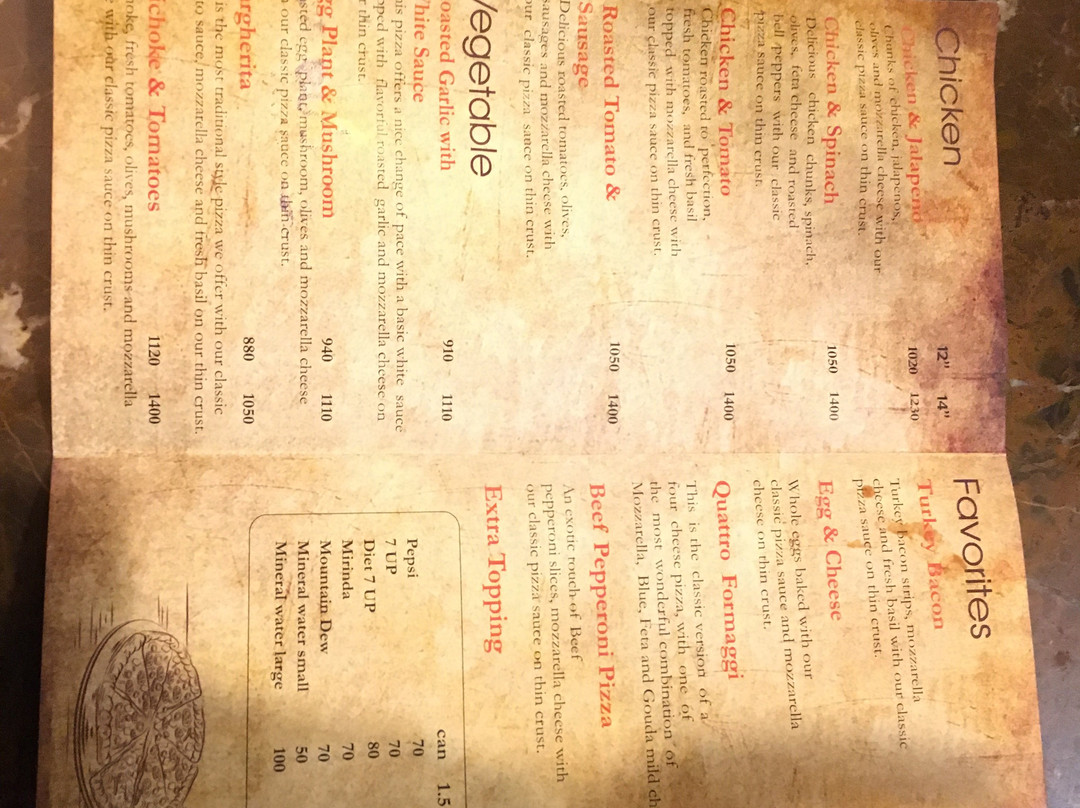 Chicken 12" 14"
Chicken & Jalapeno 1020 1230
Chunks of chicken, jalapenos,
olives and mozzarella cheese with our
classic pizza sauce on thin crust.
Chicken & Spinach 1050 1400
Delicious chicken chunks, spinach,
olives, feta cheese and roasted
bell peppers with our classic
pizza sauce on thin crust.
Chicken & Tomato 1050 1400
Chicken roasted to perfection,
fresh tomatoes, and fresh basil
topped with mozzarella cheese with
our classic pizza sauce on thin crust.
Roasted Tomato & 1050 1400
Sausage
Delicious roasted tomatoes, olives,
sausages and mozzarella cheese with
our classic pizza sauce on thin crust.
Vegetable
oasted Garlic with 910 1110
hite Sauce
his pizza offers a nice change of pace with a basic white sauce
pped with flavorful roasted garlic and mozzarella cheese on
r thin crust.
gg Plant & Mushroom 940 1110
sted egg plant, mushroom, olives and mozzarella cheese
our classic pizza sauce on thin crust.
argherita 880 1050
is the most traditional style pizza we offer with our classic
to sauce, mozzarella cheese and fresh basil on our thin crust.
ichoke & Tomatoes 1120 1400
hoke, fresh tomatoes, olives, mushrooms and mozzarella
e with our classic pizza sauce on thin crust.
Favorites
Turkey Bacon
Turkey bacon strips, mozzarella
cheese and fresh basil with our classic
pizza sauce on thin crust.
Egg & Cheese
Whole eggs baked with our
classic pizza sauce and mozzarella
cheese on thin crust.
Quattro Formaggi
This is the classic version of a
four cheese pizza, with one of
the most wonderful combination of
Mozzarella, Blue, Feta and Gouda mild ch
Beef Pepperoni Pizza
An exotic touch of Beef
pepperoni slices, mozzarella cheese with
our classic pizza sauce on thin crust.
Extra Topping
can 1.5
Pepsi 70
7 UP 70
Diet 7 UP 80
Mirinda 70
Mountain Dew 70
Mineral water small 50
Mineral water large 100